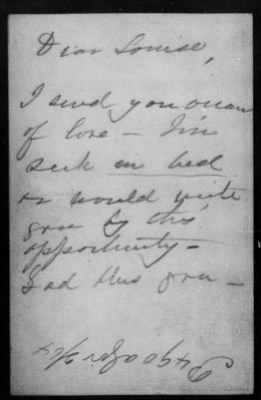 Dear Louise,
I send you ocean
of love – I'm
sick in bed
or would write
you by this
opportunity –
God bless you –